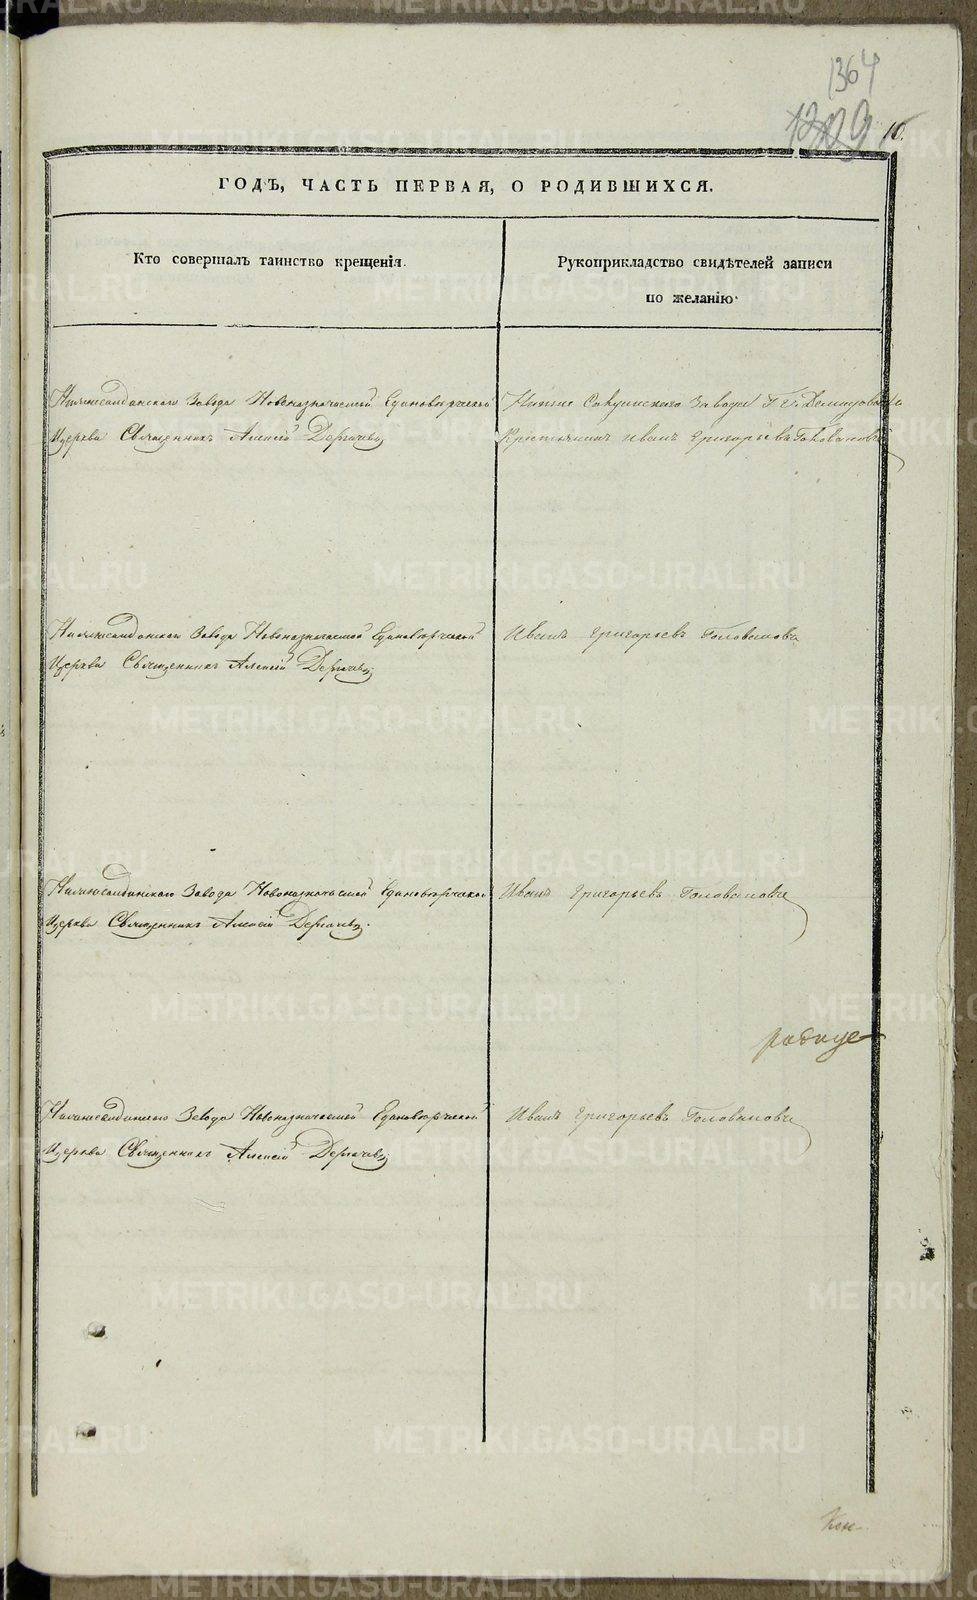 1364
1209
10.
ГОДЪ, ЧАСТЬ ПЕРВАЯ, О РОДИВШИХСЯ.
Кто совершалъ таинство крещенія.
Рукоприкладство свидѣтелей записи
по желанію
Нижнесалдинскаго Завода Новоназначаемой Единоверческой
Церкви Священникъ Алексій Дергачевъ
Завода
Крестьянинъ Иванъ Григорьевъ Головановъ
Нижнесалдинскаго Завода Новоназначаемой Единоверческой
Церкви Священникъ Алексій Дергачевъ
Иванъ Григорьевъ Головановъ
Нижнесалдинскаго Завода Новоназначаемой Единоверческой
Церкви Священникъ Алексій Дергачевъ.
Иванъ Григорьевъ Головановъ
Нижнесалдинскаго Завода Новоназначаемой Единоверческой
Церкви Священникъ Алексій Дергачевъ
Иванъ Григорьевъ Головановъ
METRIKI.GASO-URAL.RU